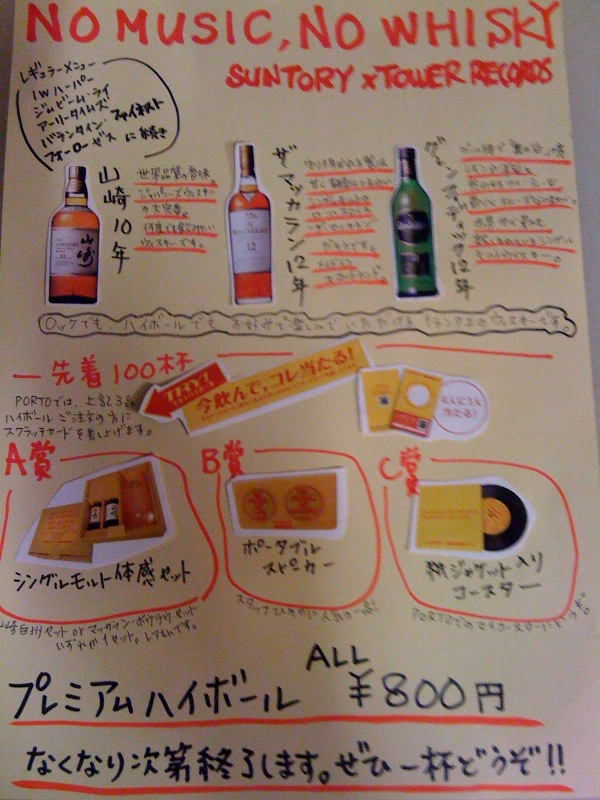 NO MUSIC, NO WHISKY
SUNTORY × TOWER RECORDS
レギュラーメニュー
IWハーパー
ジムビーム・ライ
アーリータイムズ
バランタイン・ファイネスト
フォーローゼス に続き
山崎10年
世界品質の旨味。
ジャパニーズウイスキー
の大定番。
何度でも飲みたい
ウイスキーです。
山崎
ザ・マッカラン12年
MACALLAN
12
シングルモルトの
ロールスロイス
グレンフィディック12年
シングル
モルトウイスキー。
ロックでも、ハイボールでも お好みで楽しんでいただける ランク上のウイスキーです。
先着100杯
PORTOでは、上記3品
ハイボールご注文の方に
スクラッチカードを差し上げます。
今飲んで、コレ当たる!
当たる!
A賞
シングルモルト体感セット
山崎白州セット or マッカラン・ボウモアセット
いずれか1セット。レアもんです。
B賞
ポータブル
スピーカー
スタッフひそかに人気の一品!
C賞
紙ジャケット入り
コースター
PORTOでのマイコースターにどうぞ。
プレミアムハイボール ALL ¥800円
なくなり次第終了します。ぜひ一杯どうぞ!!